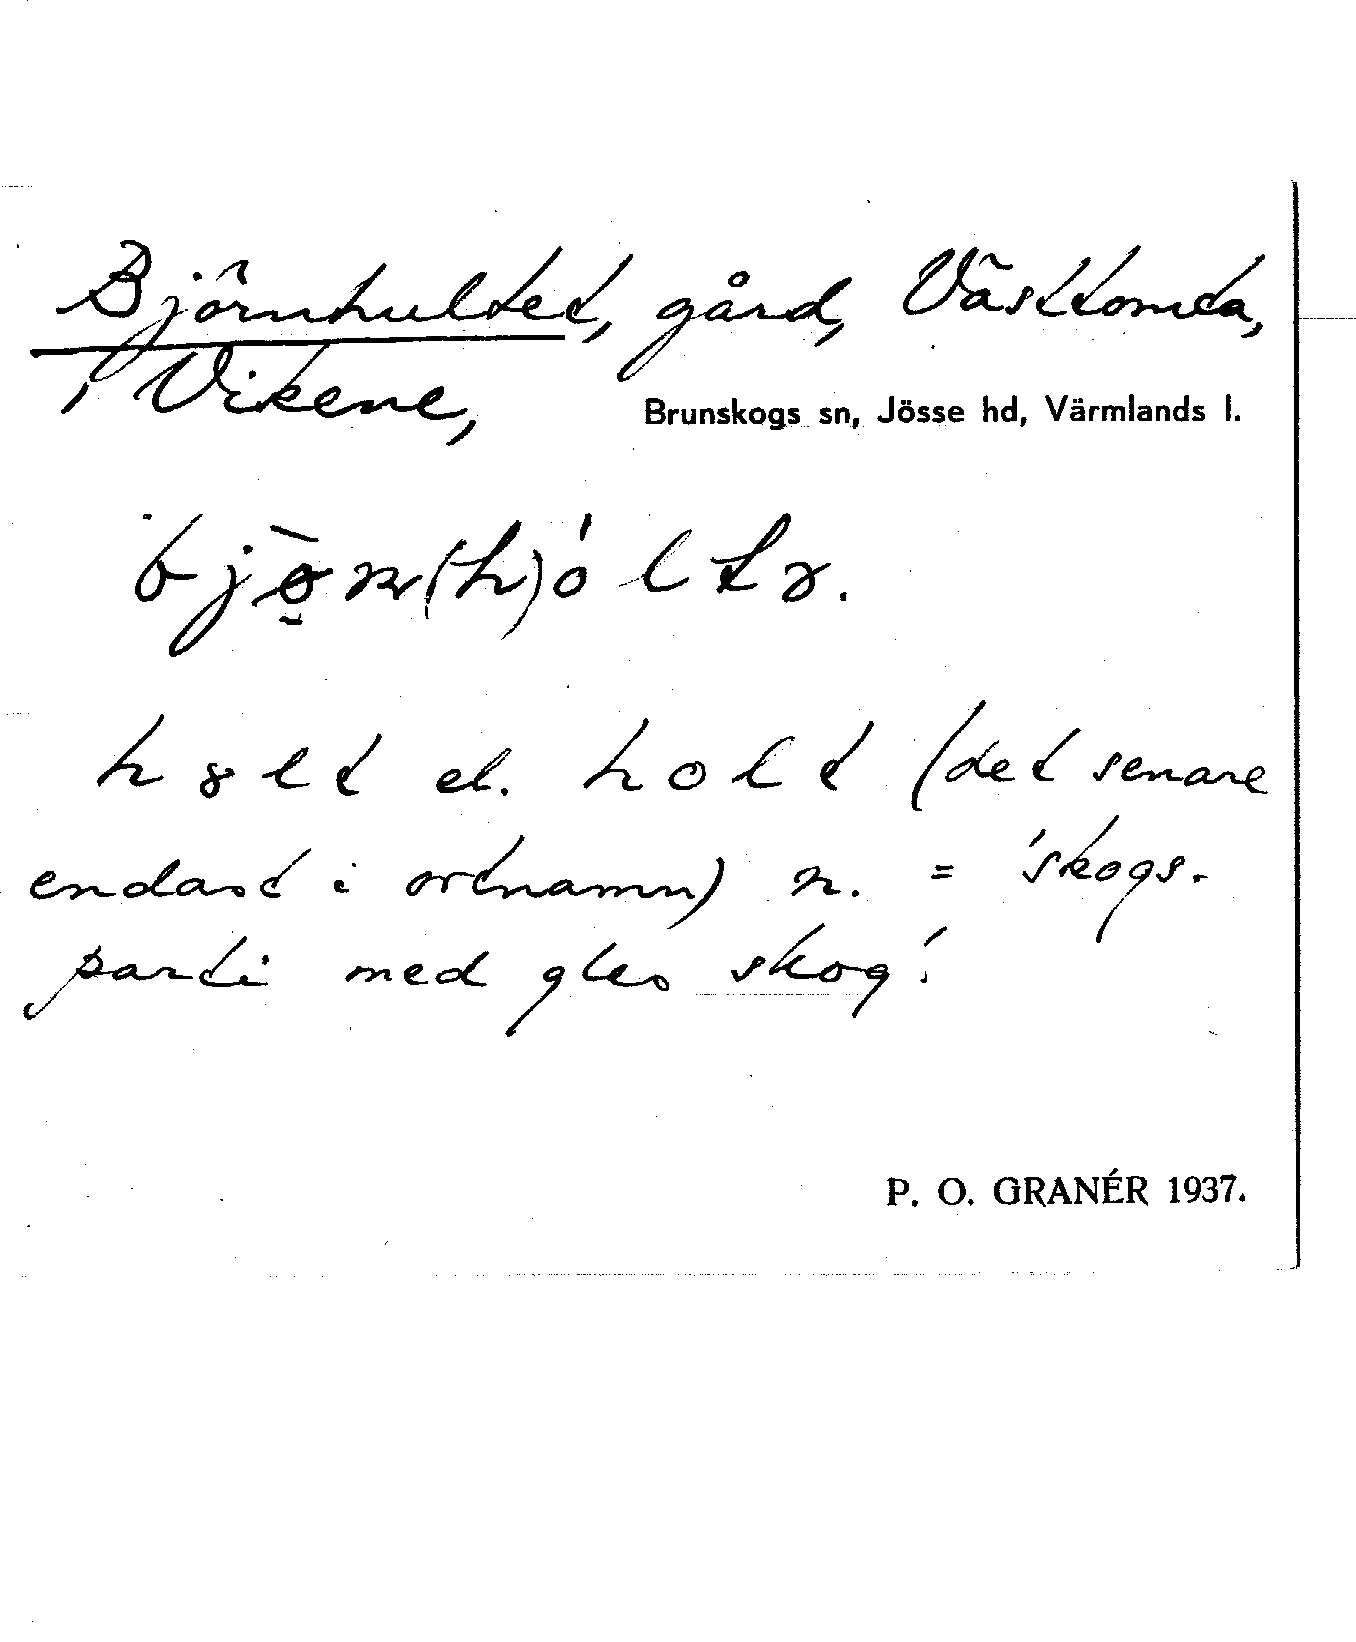 Björnhultet, gård, Västtomta,
i Vikene,
Brunskogs sn, Jösse hd, Värmlands l.
bjø̄n(h)óltɤ.
hɤlt el. holt (det senare
endast i ortnamn) n. = 'skogs-
parti med gles skog'.
P. O. GRANÉR 1937.